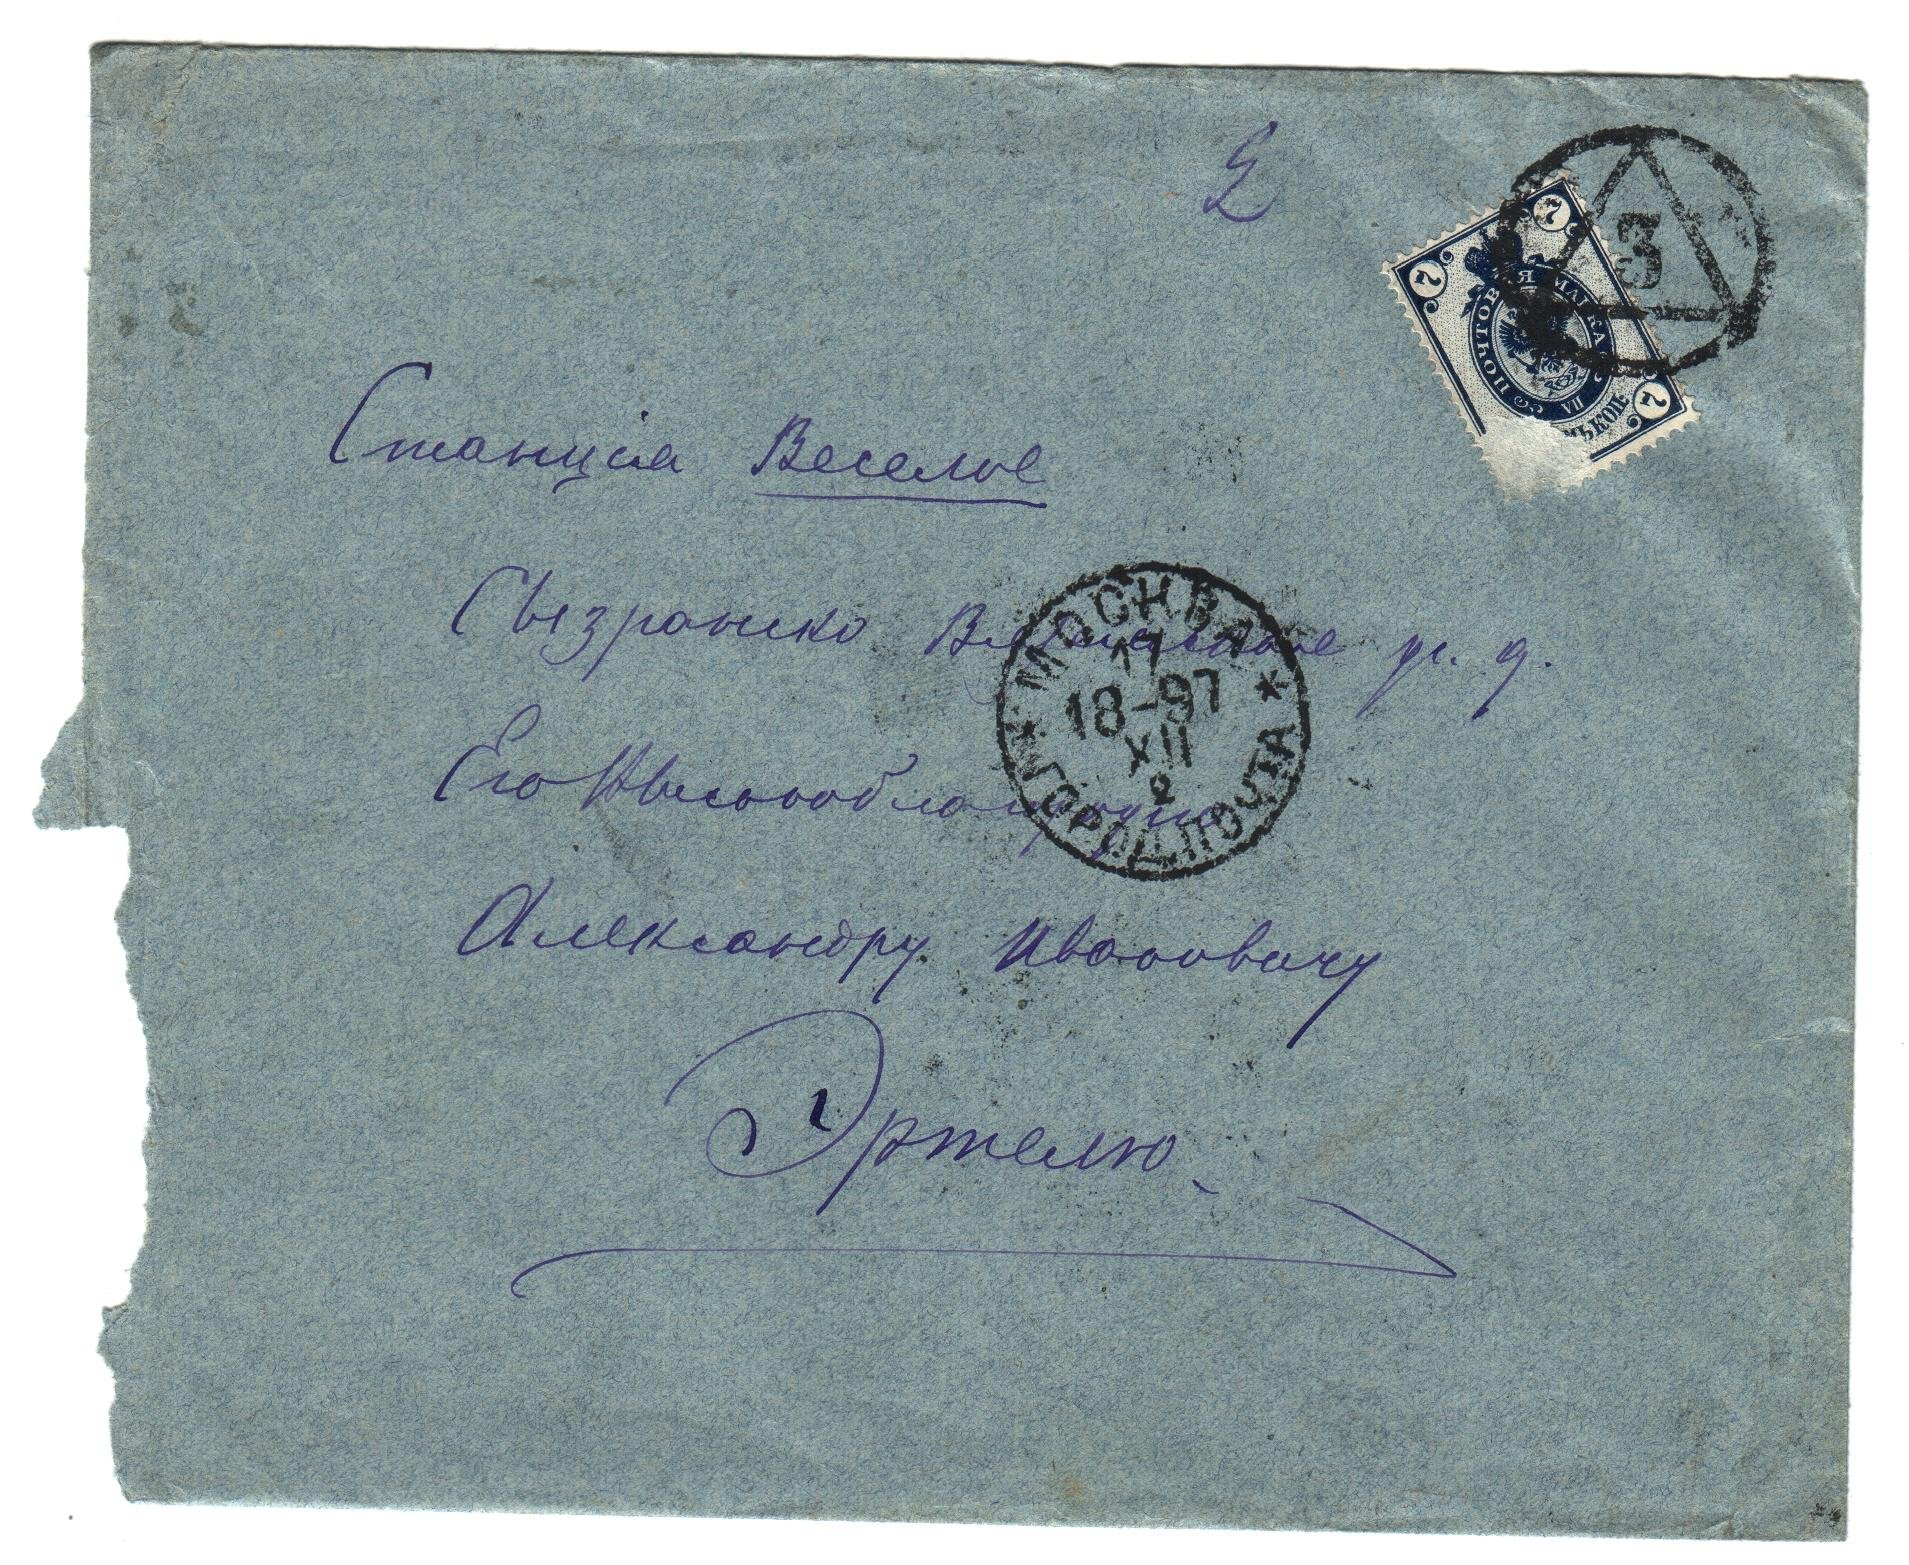 7
7
7
ПОЧТОВАЯ МАРКА
СЕМЬ КОП.
3
Станція Веселое
Сызранско Вяземское ж. д.
МОСКВА
17
18-97
XII
2
ГОРОД. ПОЧТА
Его Высокоблагородію
Александру Ивановичу
Эртелю